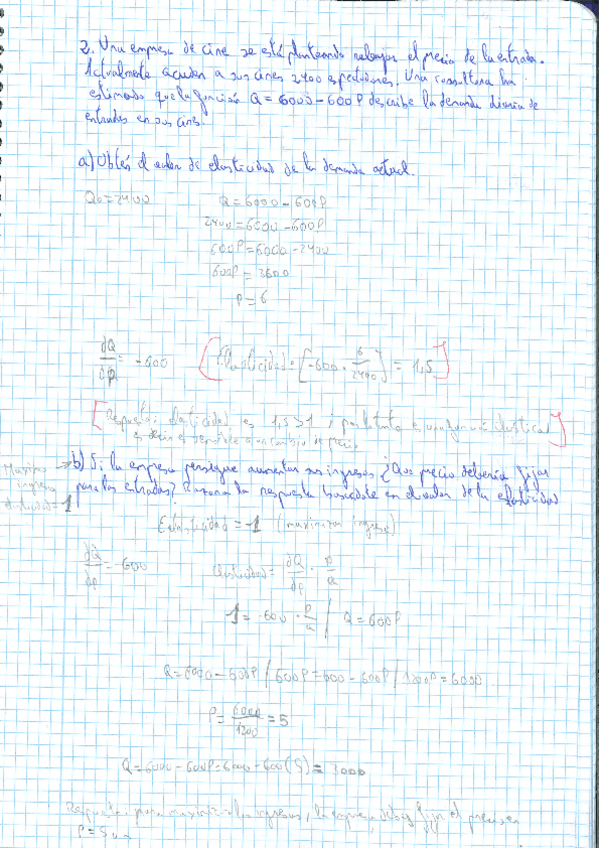 2. Una empresa de cine se está planteando rebajar el precio de la entrada.
Actualmente acuden a sus cines 2400 espectadores. Una consultora ha
estimado que la función Q = 6000 - 600P describe la demanda diaria de
entradas en sus cines.
a) Obtén el valor de elasticidad de la demanda actual.
Q₀ = 2400 Q = 6000 - 600P
2400 = 6000 - 600P
600P = 6000 - 2400
600P = 3600
P = 6
dQ/dp = -600 [Elasticidad = [-600 · 6/2400] = 1,5]
[Respuesta: elasticidad es 1,5 > 1 ; por lo tanto es una elástica
es decir es sensible a un cambio de precio]
b) Si la empresa persigue aumentar sus ingresos ¿Que precio debería fijar
para las entradas? Razona la respuesta basándote en el valor de la elasticidad
Maximo
ingreso
elasticidad = 1
Elasticidad = -1 (maximizar ingreso)
dQ/dp = -600 elasticidad = dQ/dp · P/Q
1 = -600 · P/Q / Q = 600P
Q = 6000 - 600P / 600P = 600 - 600P / 1200P = 6000
P = 6000/1200 = 5
Q = 6000 - 600P = 6000 - 600(5) = 3000
Respuesta: para maximizar los ingresos, la empresa debe fijar el precio en
P = 5